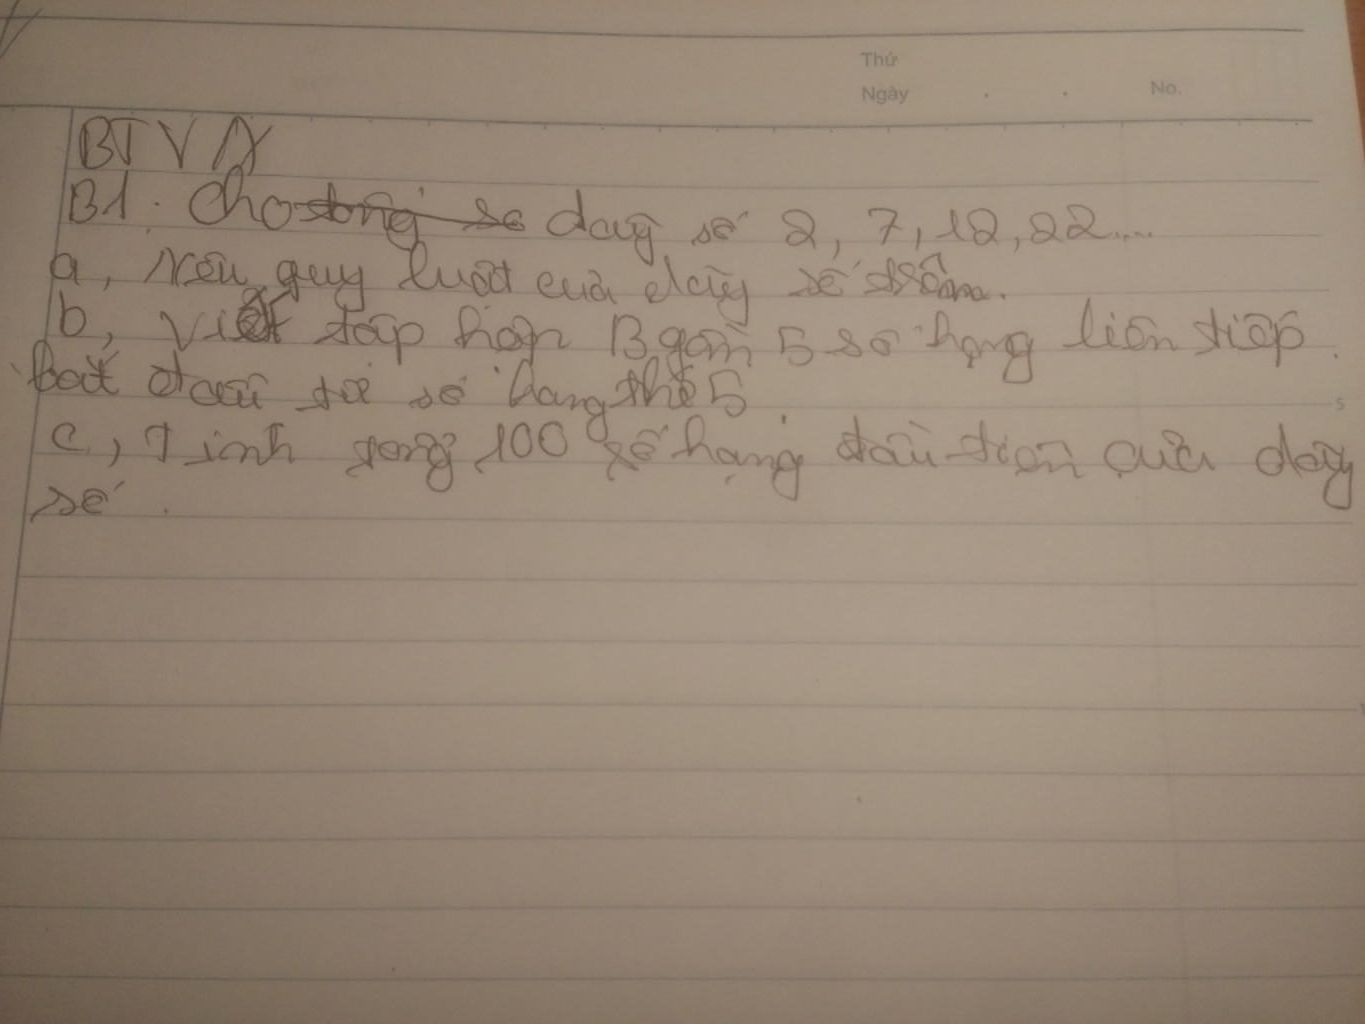 Thứ
Ngày . . No.
BTVN
B1. Cho tổng số dãy số 2, 7, 12, 22....
a, Nêu quy luật của dãy số trên.
b, Viết tập hợp B gồm 5 số hạng liên tiếp
bắt đầu từ số hạng thứ 5
c, Tính tổng 100 số hạng đầu tiên của dãy
số.